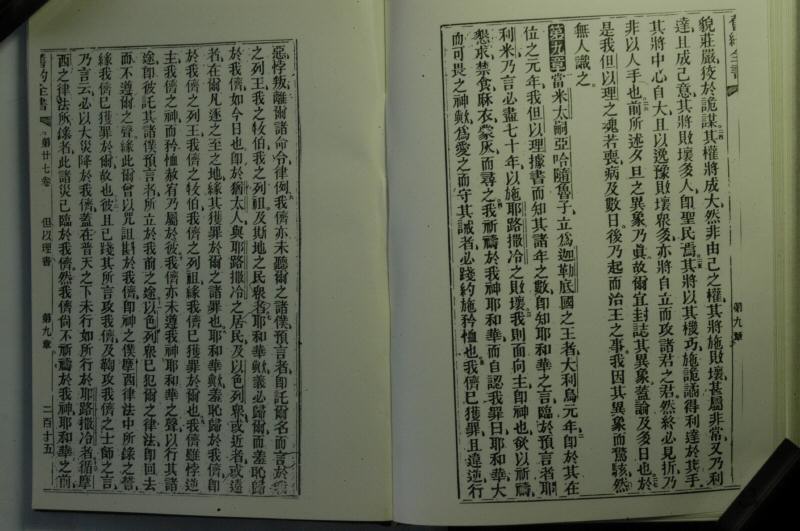 舊約全書
第九章
貌莊嚴狡於詭謀其權將成大然非由己之權其將施敗壞甚屬非常又乃利
達且成己意其將敗壞多人卽聖民焉其將以其機巧施詭譎得利達於其手
其將中心自大且以逸豫敗壞衆多亦將自立而攻諸君之君然終必見折乃
非以人手也前所述夕旦之異象乃眞故爾宜封誌其異象蓋論及多日也於
是我但以理之魂若喪病及數日後乃起而治王之事我因其異象而驚駭然
無人識之
第九章當米太嗣亞哈隨魯子立爲迦勒底國之王者大利烏元年卽於其在
位之元年我但以理據書也而知其諸年之數卽知耶和華之言臨於預言者耶
利米乃言必盡七十年以施耶路撒冷之敗壞我則面向主卽神也欲以祈禱
懇求禁食麻衣蒙灰而尋之我祈禱於我神耶和華而自認我罪曰耶和華大
而可畏之神歟爲愛之而守其誡者必踐約施矜恤也我儕已獲罪且違逆行
惡悖叛離爾諸命令律例我儕亦未聽爾之諸僕預言者卽託爾名而言於我
之列王我之牧伯我之列祖及斯地之民衆者耶和華歟義必歸爾而羞恥歸
於我儕如今日也卽於猶太人與耶路撒冷之居民及以色列衆或近者或遠
者在爾凡逐之至之地緣其獲罪於爾之諸罪也耶和華歟羞恥歸於我儕卽
於我儕之列王我儕之牧伯我儕之列祖緣我儕已獲罪於爾也我儕雖悖逆
主我儕之神而矜恤赦宥乃屬於彼我儕亦未遵我神耶和華之聲以行其諸
途卽彼託其諸僕預言者所立於我前之途以色列衆已犯爾之律法卽回去
而不遵爾之聲緣此爾曾以咒詛斯於我儕卽神之僕摩西律法中所錄之誓
緣我儕已獲罪於爾故也彼且已踐其所言攻我儕及鞫攻我儕之士師之言
乃言云必以大災降於我儕蓋在普天之下未行如所行於耶路撒冷者循摩
西之律法所錄者此諸災已臨於我儕然我儕尙不祈禱於我神耶和華之前
舊約全書
第廿七卷
但以理書
第九章
二百十五